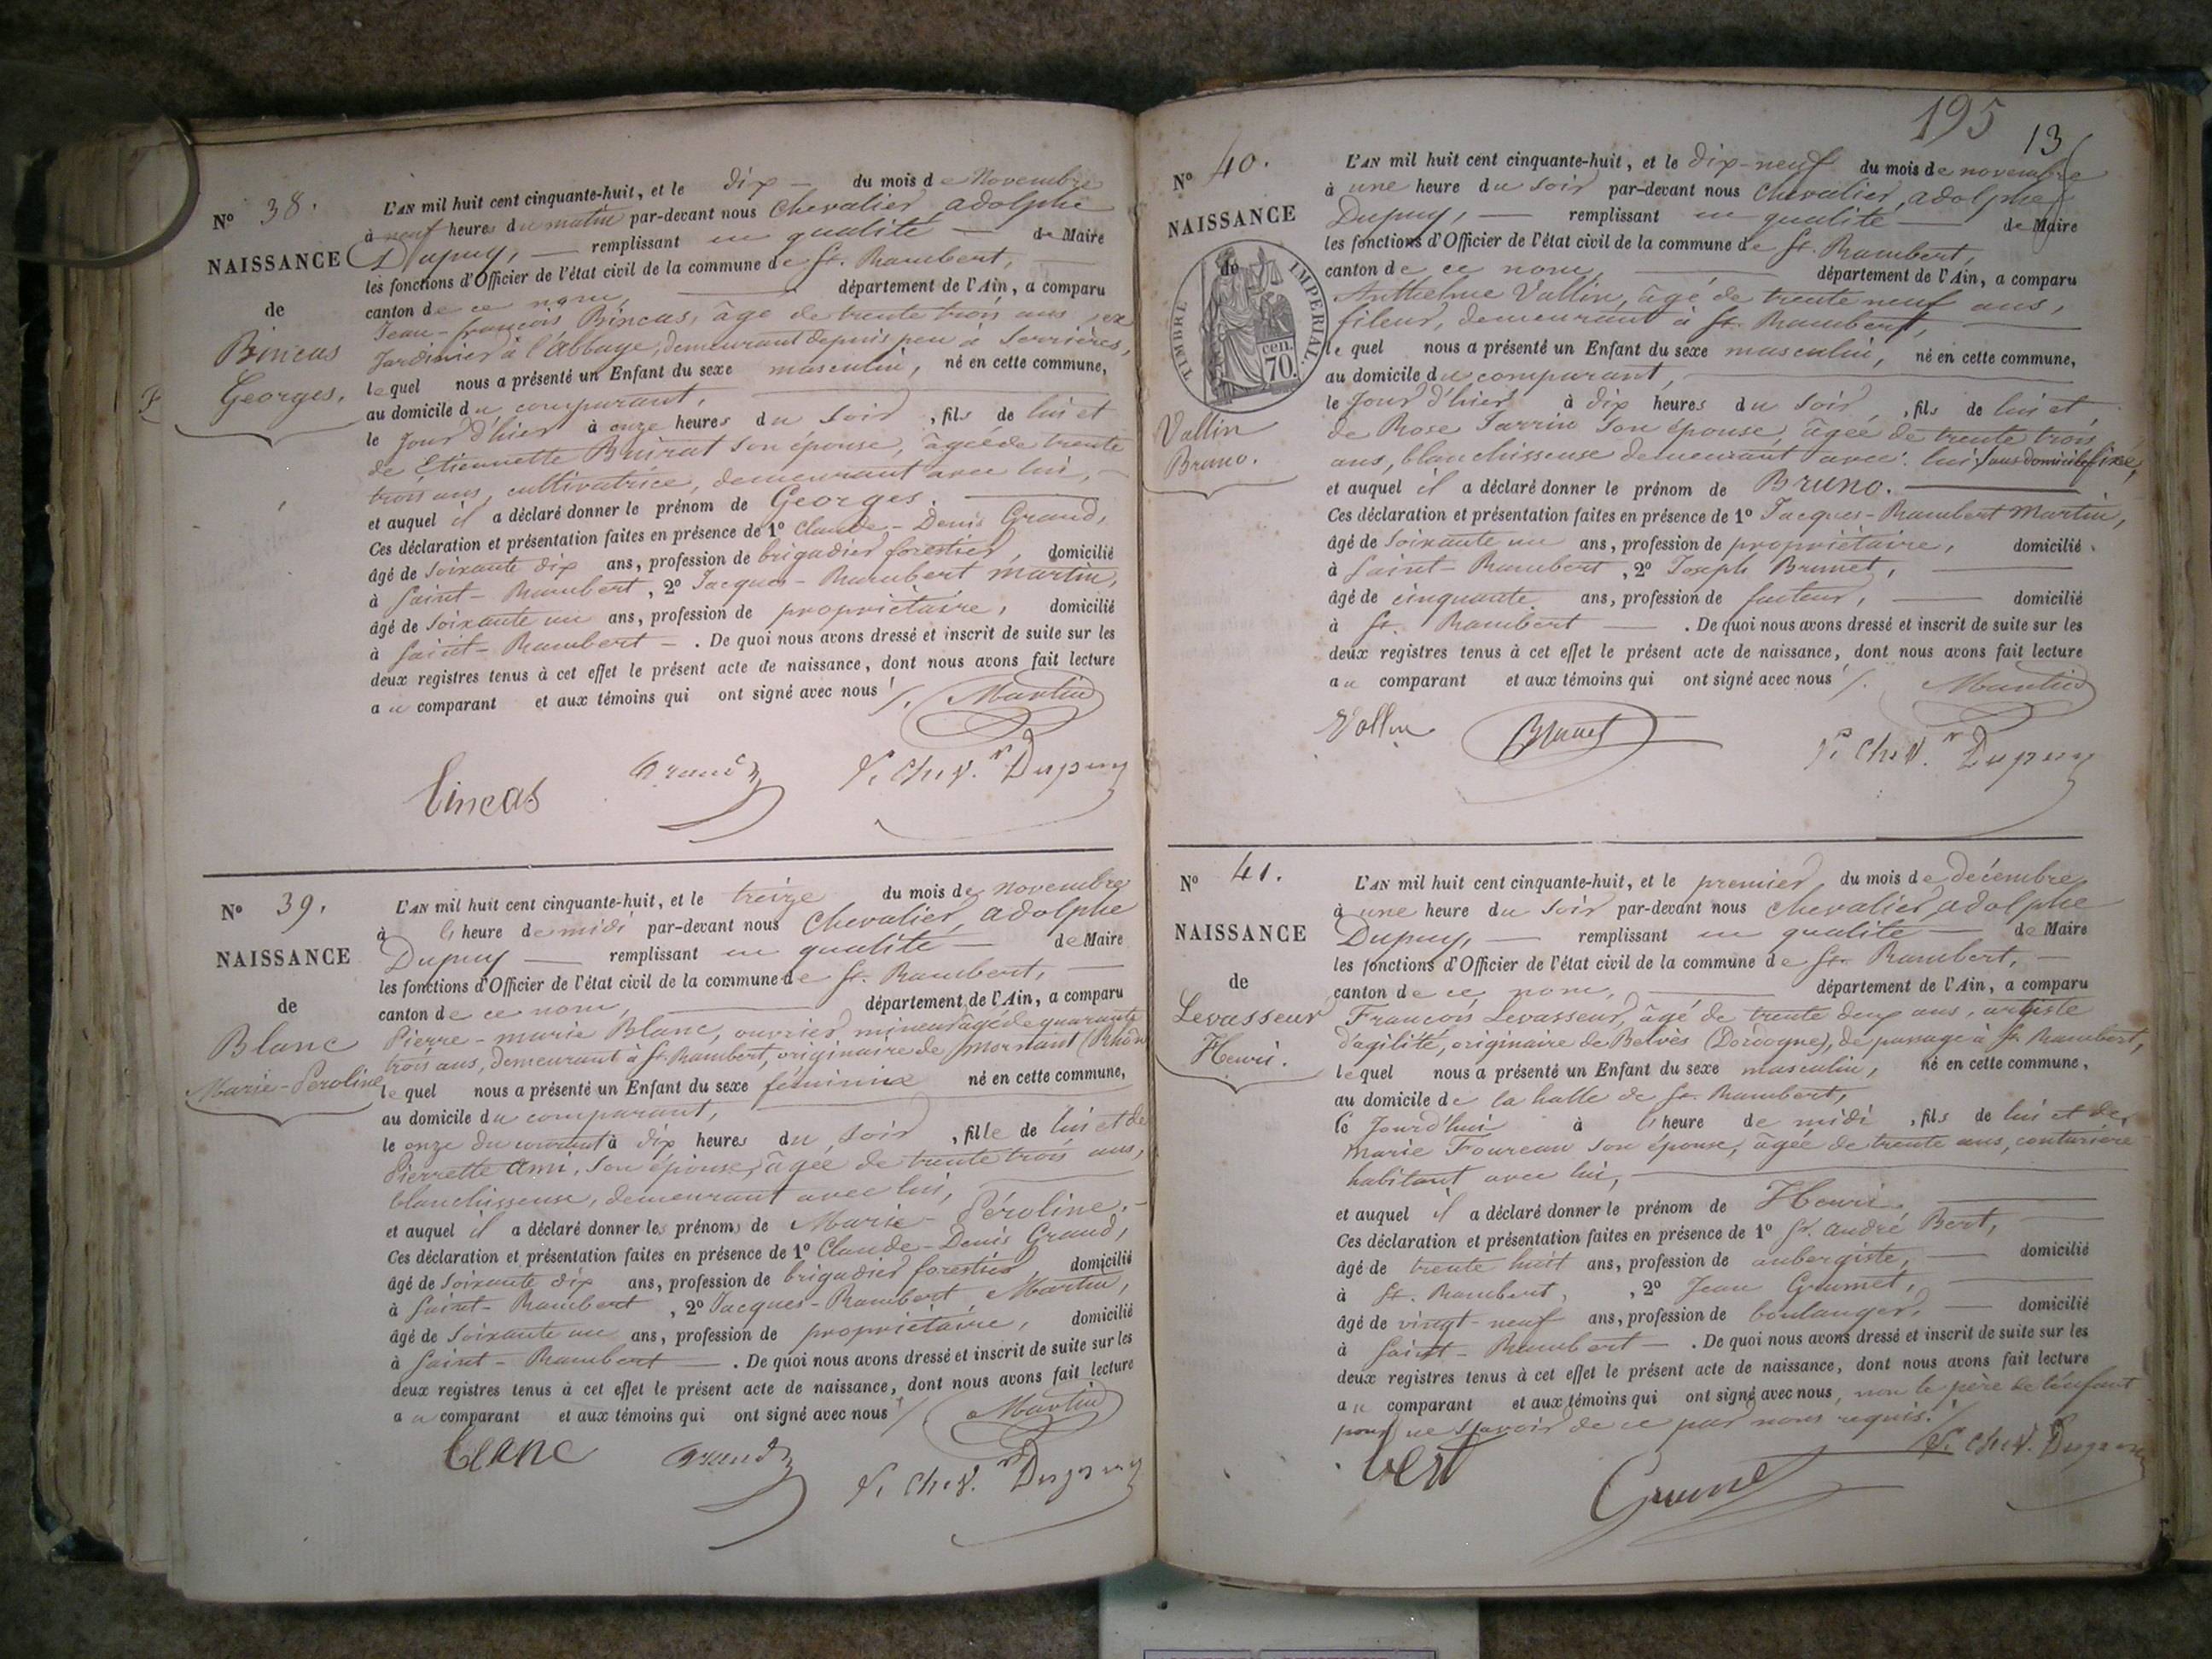 N° 38.
NAISSANCE
de
Bincas
Georges.
L'AN mil huit cent cinquante-huit, et le dix — du mois de Novembre
à neuf heures du matin par-devant nous Chevalier adolphe
Dupuy, — remplissant en qualité — de Maire
les fonctions d'Officier de l'état civil de la commune de St. Rambert,
canton de ce nom, département de l'Ain, a comparu
Jean-françois Bincas, âgé de trente trois ans, ex
Jardinier à l'abbaye, demeurant depuis peu à Serrières,
lequel nous a présenté un Enfant du sexe masculin, né en cette commune,
au domicile du comparant,
le Jour d'hier à onze heures du Soir, fils de lui et
de Etiennette Bruirat son épouse, âgée de trente
trois ans, cultivatrice, demeurant avec lui,
et auquel il a déclaré donner le prénom de Georges.
Ces déclaration et présentation faites en présence de 1° Claude-Denis Grand,
âgé de Soixante dix ans, profession de brigadier forestier, domicilié
à Saint-Rambert, 2° Jacques-Rambert Martin,
âgé de Soixante un ans, profession de propriétaire, domicilié
à Saint-Rambert — . De quoi nous avons dressé et inscrit de suite sur les
deux registres tenus à cet effet le présent acte de naissance, dont nous avons fait lecture
au comparant et aux témoins qui ont signé avec nous /. Martin
bincas Grand Chev.r Dupuy
N° 39.
NAISSANCE
de
Blanc
Marie-Peroline
L'AN mil huit cent cinquante-huit, et le treize du mois de novembre
à heure de midi par-devant nous Chevalier adolphe
Dupuy — remplissant en qualité — de Maire
les fonctions d'Officier de l'état civil de la commune de St. Rambert,
canton de ce nom, département de l'Ain, a comparu
Pierre-marie Blanc, ouvrier mineur âgé de quarante
trois ans, demeurant à St. Rambert, originaire de Mornant (Rhône
lequel nous a présenté un Enfant du sexe féminin né en cette commune,
au domicile du comparant,
le onze du courant à dix heures du Soir, fille de lui et de
Pierrette Ami, son épouse, âgée de trente trois ans,
blanchisseuse, demeurant avec lui,
et auquel il a déclaré donner les prénoms de Marie-Péroline.
Ces déclaration et présentation faites en présence de 1° Claude-Denis Grand,
âgé de Soixante dix ans, profession de brigadier forestier, domicilié
à Saint-Rambert, 2° Jacques-Rambert Martin,
âgé de Soixante un ans, profession de propriétaire, domicilié
à Saint-Rambert — . De quoi nous avons dressé et inscrit de suite sur les
deux registres tenus à cet effet le présent acte de naissance, dont nous avons fait lecture
au comparant et aux témoins qui ont signé avec nous / Martin
blanc Grand Chev.r Dupuy
195
13
N° 40.
NAISSANCE
de
TIMBRE IMPERIAL
cen.
70.
Vallin
Bruno.
L'AN mil huit cent cinquante-huit, et le dix-neuf du mois de novembre
à une heure du Soir par-devant nous Chevalier, adolphe
Dupuy, — remplissant en qualité — de Maire
les fonctions d'Officier de l'état civil de la commune de St. Rambert,
canton de ce nom, département de l'Ain, a comparu
Anthelme Vallin, âgé de trente neuf ans,
fileur, demeurant à St. Rambert,
lequel nous a présenté un Enfant du sexe masculin, né en cette commune,
au domicile du comparant,
le Jour d'hier à dix heures du Soir, fils de lui et
de Rose Sarrin son épouse, âgée de trente trois
ans, blanchisseuse demeurant avec lui, sans domicile fixe,
et auquel il a déclaré donner le prénom de Bruno.
Ces déclaration et présentation faites en présence de 1° Jacques-Rambert Martin,
âgé de Soixante un ans, profession de propriétaire, domicilié
à Saint-Rambert, 2° Joseph Brunet,
âgé de cinquante ans, profession de facteur, — domicilié
à St. Rambert — . De quoi nous avons dressé et inscrit de suite sur les
deux registres tenus à cet effet le présent acte de naissance, dont nous avons fait lecture
au comparant et aux témoins qui ont signé avec nous /. Martin
Vallin Brunet Chev.r Dupuy
N° 41.
NAISSANCE
de
Levasseur
Henri.
L'AN mil huit cent cinquante-huit, et le premier du mois de décembre
à une heure du Soir par-devant nous Chevalier adolphe
Dupuy, — remplissant en qualité — de Maire
les fonctions d'Officier de l'état civil de la commune de St. Rambert, —
canton de ce nom, département de l'Ain, a comparu
François Levasseur, âgé de trente deux ans, artiste
d'agilité, originaire de Belvès (Dordogne), de passage à St. Rambert,
lequel nous a présenté un Enfant du sexe masculin, né en cette commune,
au domicile de la halle de St. Rambert,
ce Jourd'hui à heure de midi, fils de lui et de
Marie Foureau son épouse, âgée de trente ans, couturière
habitant avec lui,
et auquel il a déclaré donner le prénom de Henri.
Ces déclaration et présentation faites en présence de 1° Sr. andré Bert,
âgé de trente huit ans, profession de aubergiste, — domicilié
à St. Rambert, 2° Jean Grumet,
âgé de vingt-neuf ans, profession de boulanger, — domicilié
à Saint-Rambert — . De quoi nous avons dressé et inscrit de suite sur les
deux registres tenus à cet effet le présent acte de naissance, dont nous avons fait lecture
au comparant et aux témoins qui ont signé avec nous, non le père de l'enfant
pour ne savoir de ce par nous requis. /
bert Grumet Chev. Dupuy